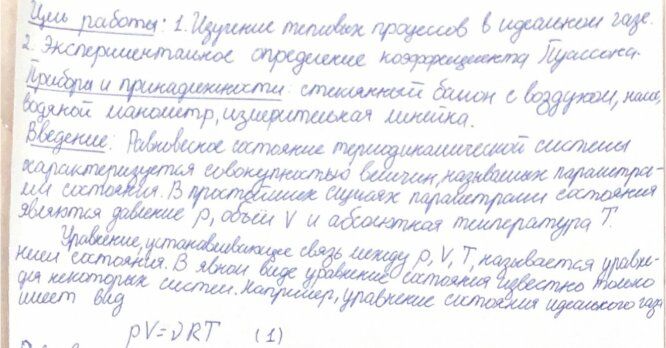 Цель работы: 1. Изучение тепловых процессов в идеальном газе.
2. Экспериментальное определение коэффициента Пуассона.
Приборы и принадлежности: стеклянный балон с воздухом,
водяной манометр, измерительная линейка.
Введение: Равновесное состояние термодинамической системы
характеризуется совокупностью величин, называемых параметра-
ми состояния. В простейших случаях параметрами состояния
являются давление p, объём V и абсолютная температура T.
Уравнение, устанавливающее связь между p, V, T, называется уравне-
нием состояния. В явном виде уравнение состояния известно только
для некоторых систем. Например, уравнение состояния идеального газа
имеет вид
pV=νRT (1)